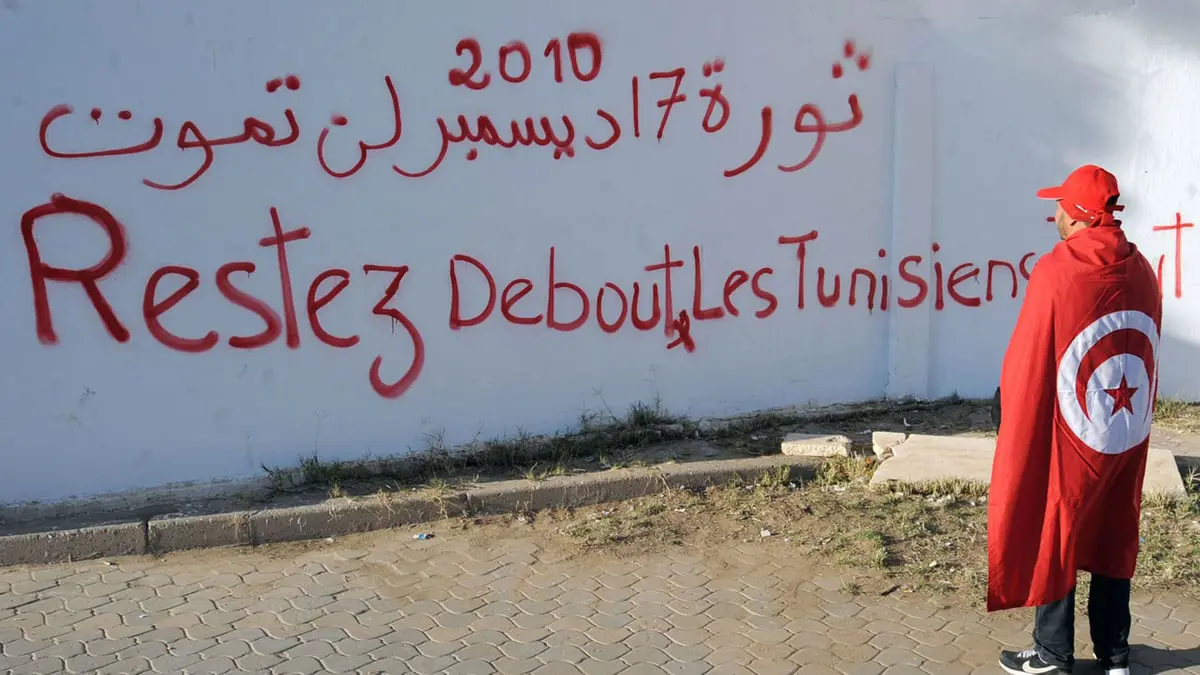 2010
ثورة 17 ديسمبر لن تموت
Restez Debout Les Tunisiens